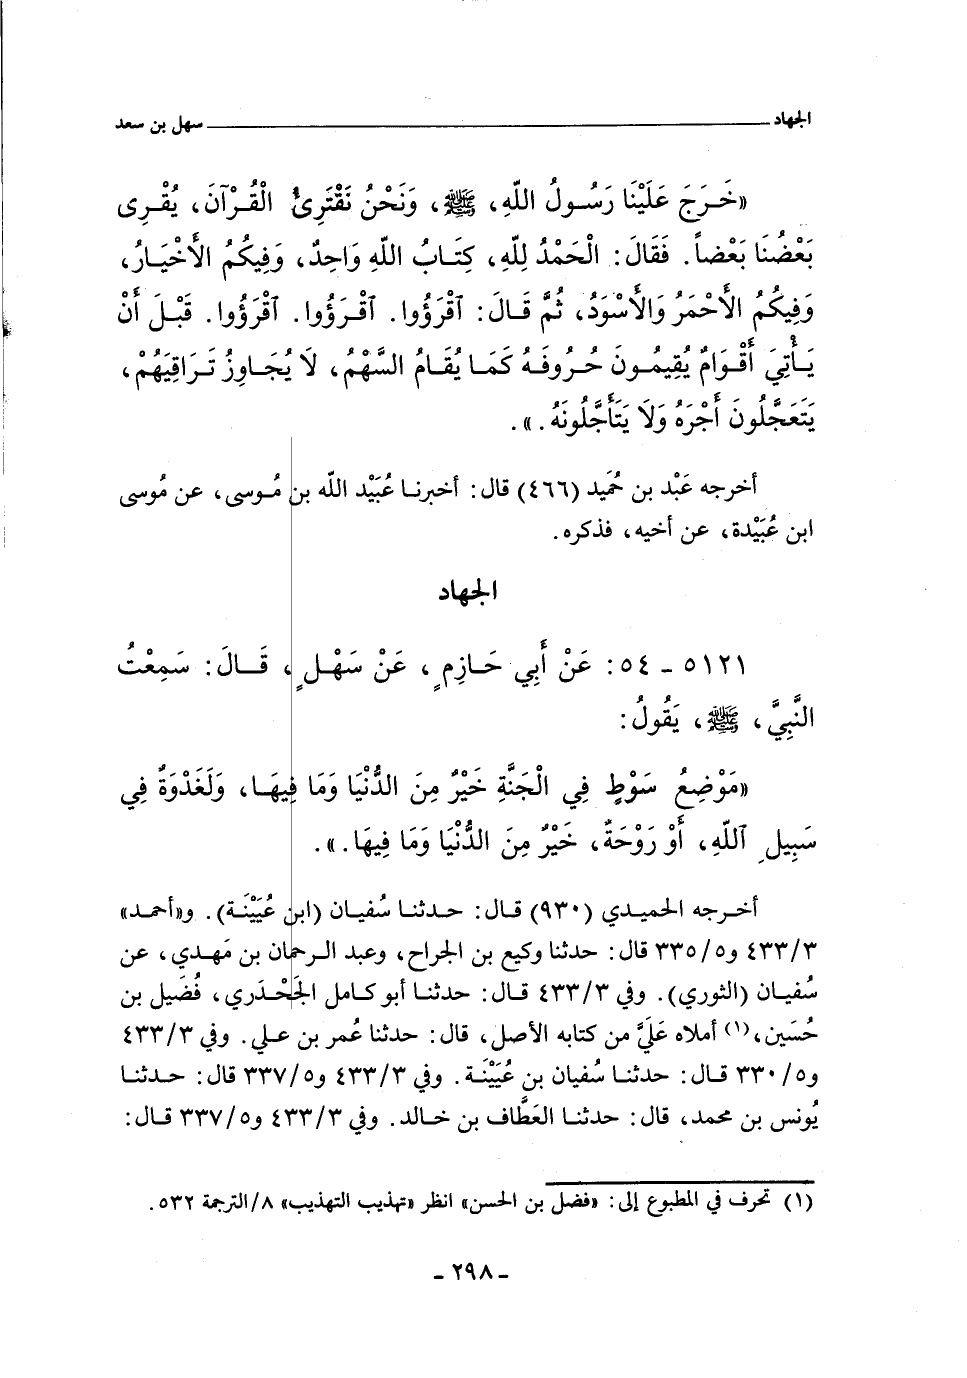 الجهاد ـــــــــــــــــ سهل بن سعد
«خَـرَجَ عَلَيْنَا رَسُـولُ اللّهِ، ﷺ، وَنَحْنُ نَقْتَرِئُ الْقُرْآنَ، يُقْـرِى
بَعْضُنَا بَعْضاً. فَقَالَ: الْحَمْدُ لِلّهِ، كِتَـابُ اللّهِ وَاحِدٌ، وَفِيكُمُ الأَخْيَـارُ،
وَفِيكُمُ الأَحْمَرُ وَالأَسْوَدُ، ثُمَّ قَـالَ: ٱقْرَؤُوا. ٱقْـرَؤُوا. ٱقْرَؤُوا. قَبْلَ أَنْ
يَـأْتِيَ أَقْـوَامٌ يُقِيمُـونَ حُـرُوفَـهُ كَمَـا يُقَـامُ السَّهْمُ، لَا يُجَـاوِزُ تَـرَاقِيَهُمْ،
يَتَعَجَّلُونَ أَجْرَهُ وَلَا يَتَأَجَّلُونَهُ.».
أخرجه عَبْد بن حُمَيد (٤٦٦) قال: أخبرنـا عُبَيْد اللّه بن مُـوسى، عن مُوسى
ابن عُبَيْدة، عن أخيه، فذكره.
الجهاد
٥١٢١ - ٥٤: عَنْ أَبِي حَـازِمٍ، عَنْ سَهْـلٍ، قَـالَ: سَمِعْتُ
النَّبِيَّ، ﷺ، يَقُولُ:
«مَوْضِعُ سَوْطٍ فِي الْجَنَّةِ خَيْرٌ مِنَ الدُّنْيَا وَمَا فِيهَـا، وَلَغَدْوَةٌ فِي
سَبِيلِ ٱللّهِ، أَوْ رَوْحَةٌ، خَيْرٌ مِنَ الدُّنْيَا وَمَا فِيهَا.».
أخـرجه الحميـدي (٩٣٠) قـال: حـدثنـا سُفيـان (ابن عُيَيْنَـة). و«أحمـد»
٤٣٣/٣ و٣٣٥/٥ قال: حدثنا وكيع بن الجراح، وعبد الـرحمان بن مَهـدي، عن
سُفيـان (الثوري). وفي ٤٣٣/٣ قـال: حدثنـا أبو كـامل الجَحْـدَري، فُضَيل بن
حُسَين،(١) أملاه عَلَيَّ من كتابه الأصل، قال: حدثنا عُمر بن عـلي. وفي ٤٣٣/٣
و٣٣٠/٥ قـال: حدثنـا سُفيان بن عُيَيْنَـة. وفي ٤٣٣/٣ و٣٣٧/٥ قال: حـدثنـا
يُونس بن محمد، قال: حدثنـا العَطَّاف بن خـالد. وفي ٤٣٣/٣ و٣٣٧/٥ قـال:
(١) تحرف في المطبوع إلى: «فضل بن الحسن» انظر «تهذيب التهذيب» ٨/الترجمة ٥٣٢.
- ٢٩٨ -